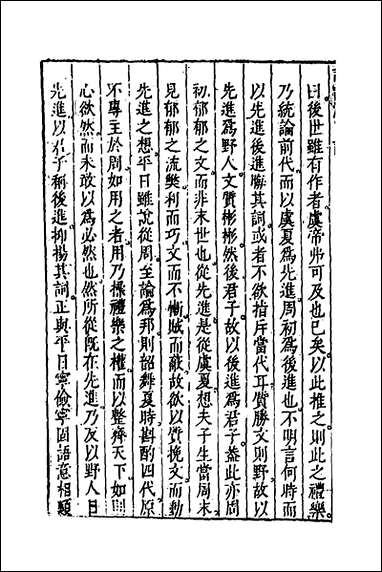 曰後世雖有作者虞帝弗可及也已矣以此推之則此之禮樂
乃統論前代而以虞夏爲先進周初爲後進也不明言何時而
以先進後進晦其詞或者不欲指斥當代耳質勝文則野故以
先進爲野人文質彬彬然後君子故以後進爲君子蓋此亦周
初郁郁之文而非末世也從先進是從虞夏想夫子生當周末
見郁郁之流獘利而巧文而不慚賊而蔽故欲以質挽文而動
先進之想平日雖說從周至論爲邦則詔舞夏時斟酌四代原
不專主於周如用之者用乃操禮樂之權而以整齊天下如則
心欲然而未敢以爲必然也然所從既在先進乃反以野人目
先進以君子稱後進抑揚其詞正與平日寧儉寧固語意相類